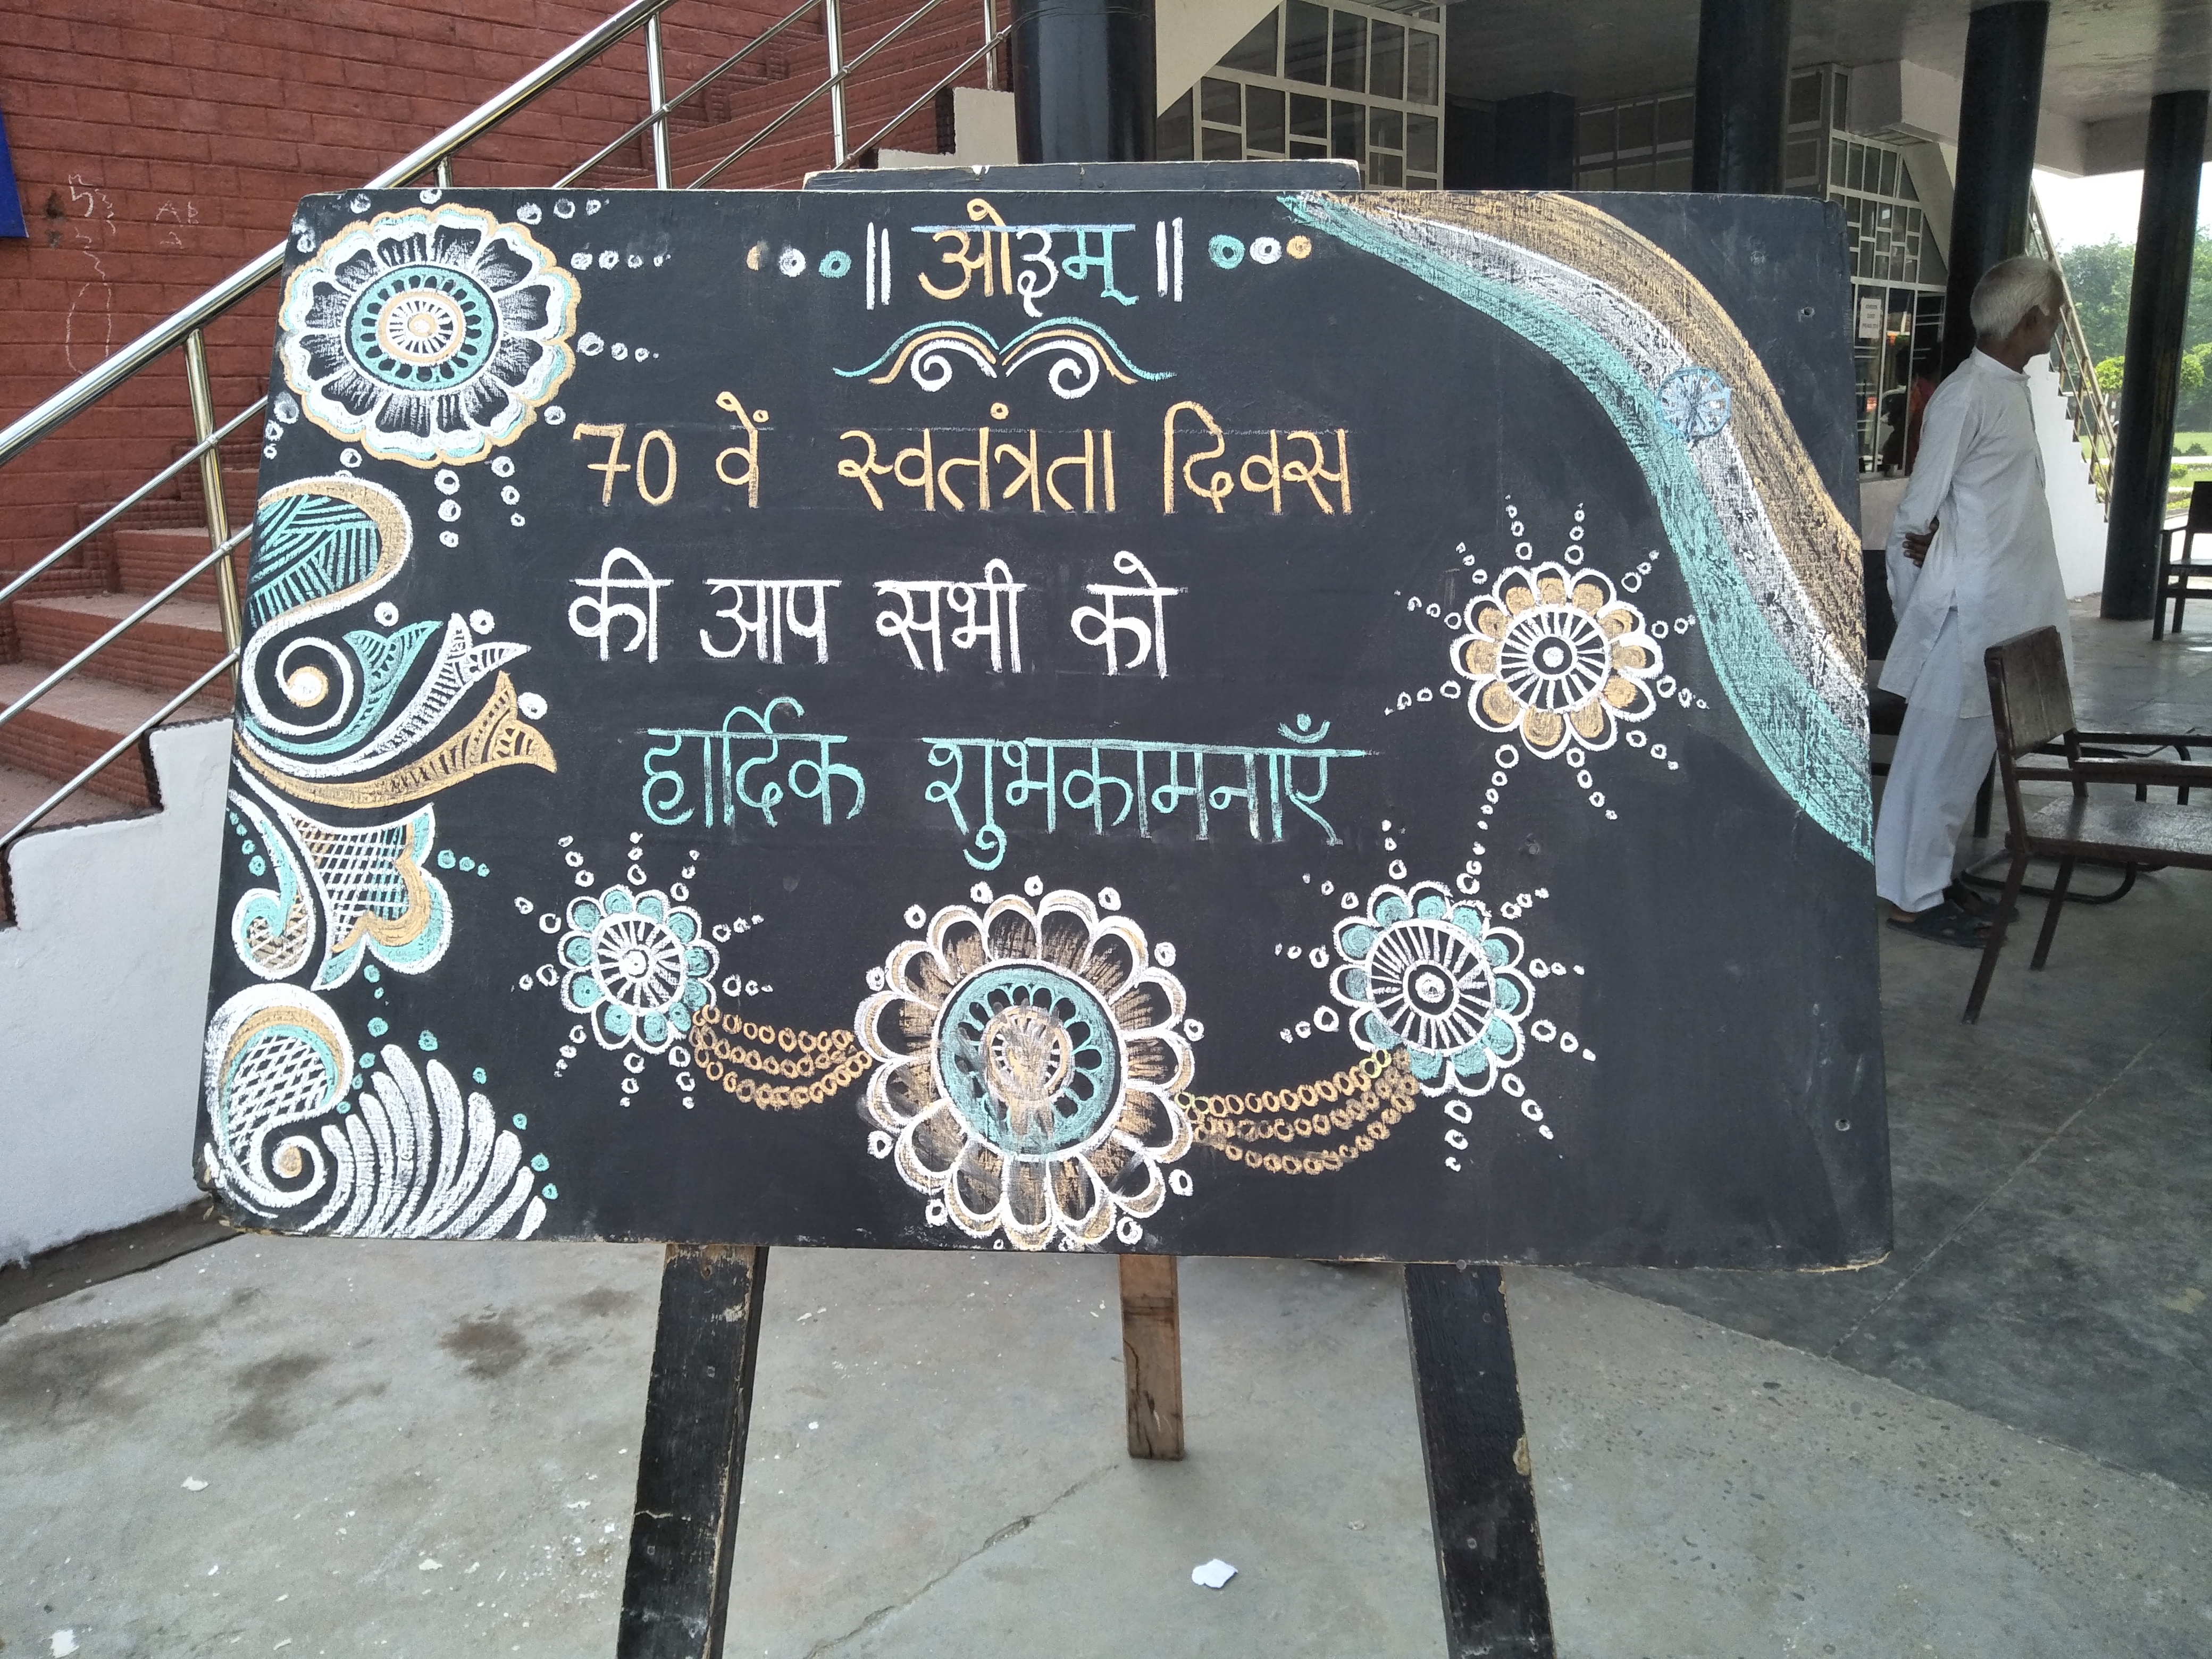 ॥ ओ३म् ॥
70 वें स्वतंत्रता दिवस
की आप सभी को
हार्दिक शुभकामनाएँ